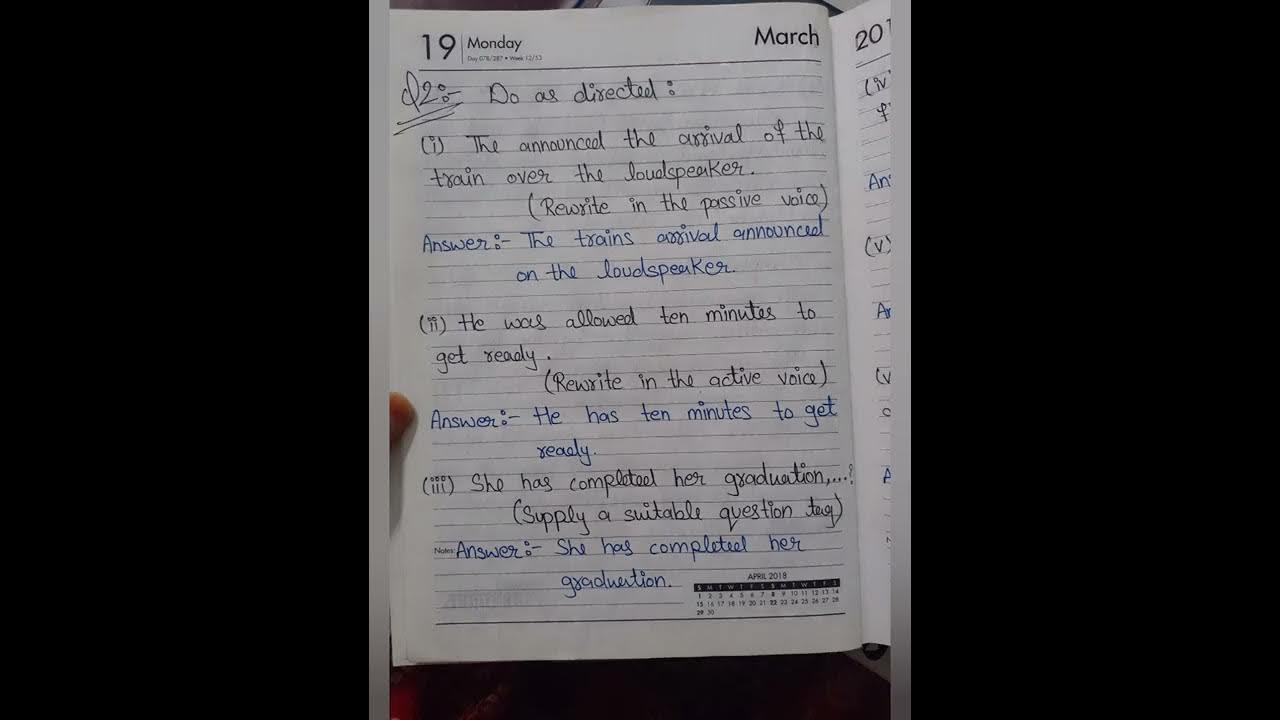 19 Monday March
Day 078/287 • Week 12/53
Q2:- Do as directed :
(i) The announced the arrival of the
train over the loudspeaker.
(Rewrite in the passive voice)
Answer:- The trains arrival announced
on the loudspeaker.
(ii) He was allowed ten minutes to
get ready.
(Rewrite in the active voice)
Answer:- He has ten minutes to get
ready.
(iii) She has completed her graduation,...?
(Supply a suitable question tag)
Notes: Answer:- She has completed her
graduation.
APRIL 2018
S M T W T F S S M T W T F S
1 2 3 4 5 6 7 8 9 10 11 12 13 14
15 16 17 18 19 20 21 22 23 24 25 26 27 28
29 30
201
(iv)
f
An
(v)
An
(v
A